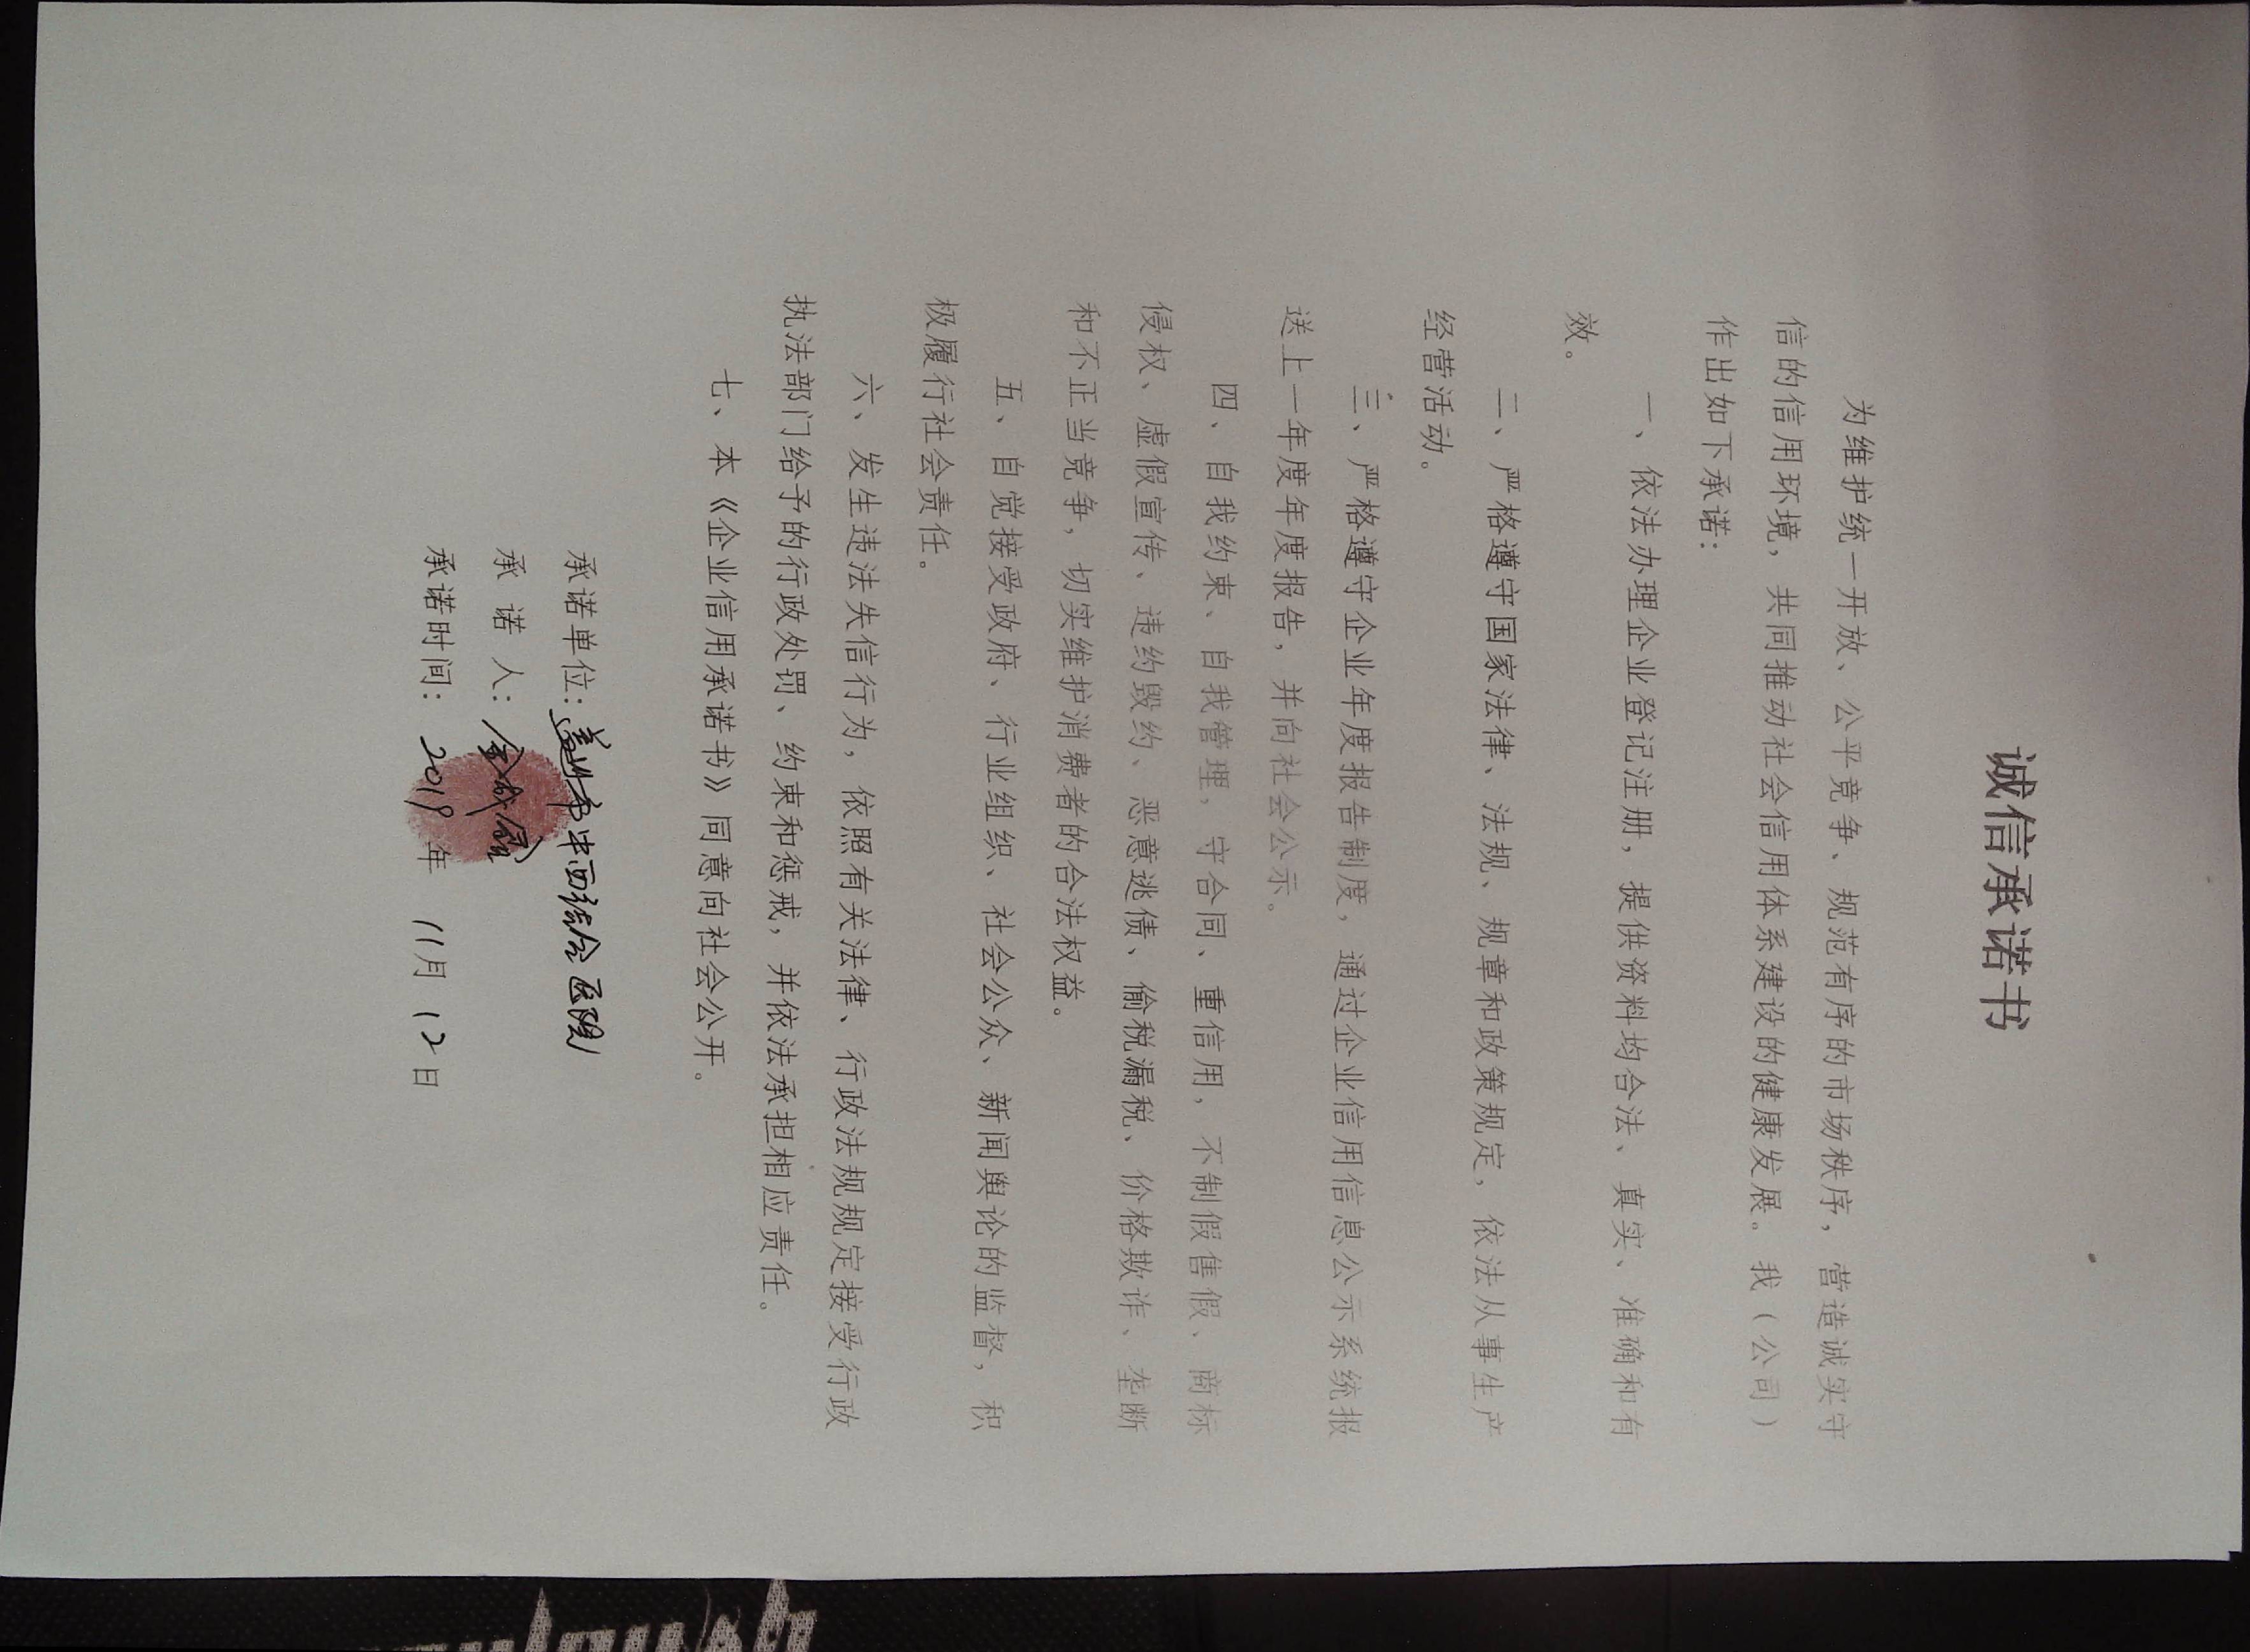 诚信承诺书
为维护统一开放、公平竞争、规范有序的市场秩序，营造诚实守
信的信用环境，共同推动社会信用体系建设的健康发展。我（公司）
作出如下承诺：
一、依法办理企业登记注册，提供资料均合法、真实、准确和有
效。
二、严格遵守国家法律、法规、规章和政策规定，依法从事生产
经营活动。
三、严格遵守企业年度报告制度，通过企业信用信息公示系统报
送上一年度年度报告，并向社会公示。
四、自我约束、自我管理，守合同、重信用，不制假售假、商标
侵权、虚假宣传、违约毁约、恶意逃债、偷税漏税、价格欺诈、垄断
和不正当竞争，切实维护消费者的合法权益。
五、自觉接受政府、行业组织、社会公众、新闻舆论的监督，积
极履行社会责任。
六、发生违法失信行为，依照有关法律、行政法规规定接受行政
执法部门给予的行政处罚、约束和惩戒，并依法承担相应责任。
七、本《企业信用承诺书》同意向社会公开。
承诺单位：盖州市中西结合医院
承 诺 人：金
承诺时间：2019年 11月 12日